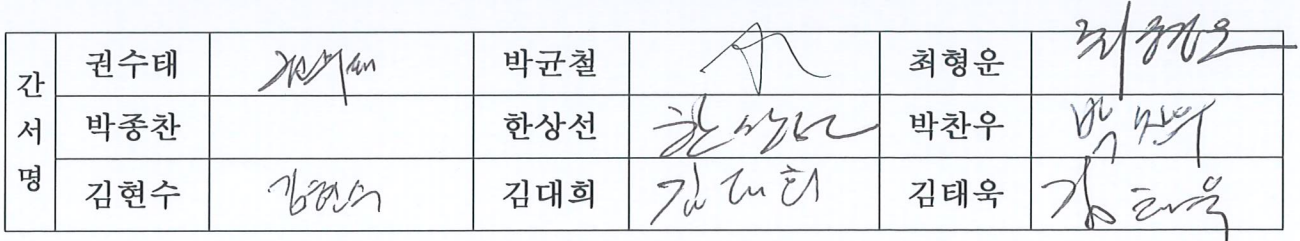 간서명
권수태 권수태 박균철 최형운 최형운
박종찬 한상선 한상선 박찬우 박찬우
김현수 김현수 김대희 김대희 김태욱 김태욱